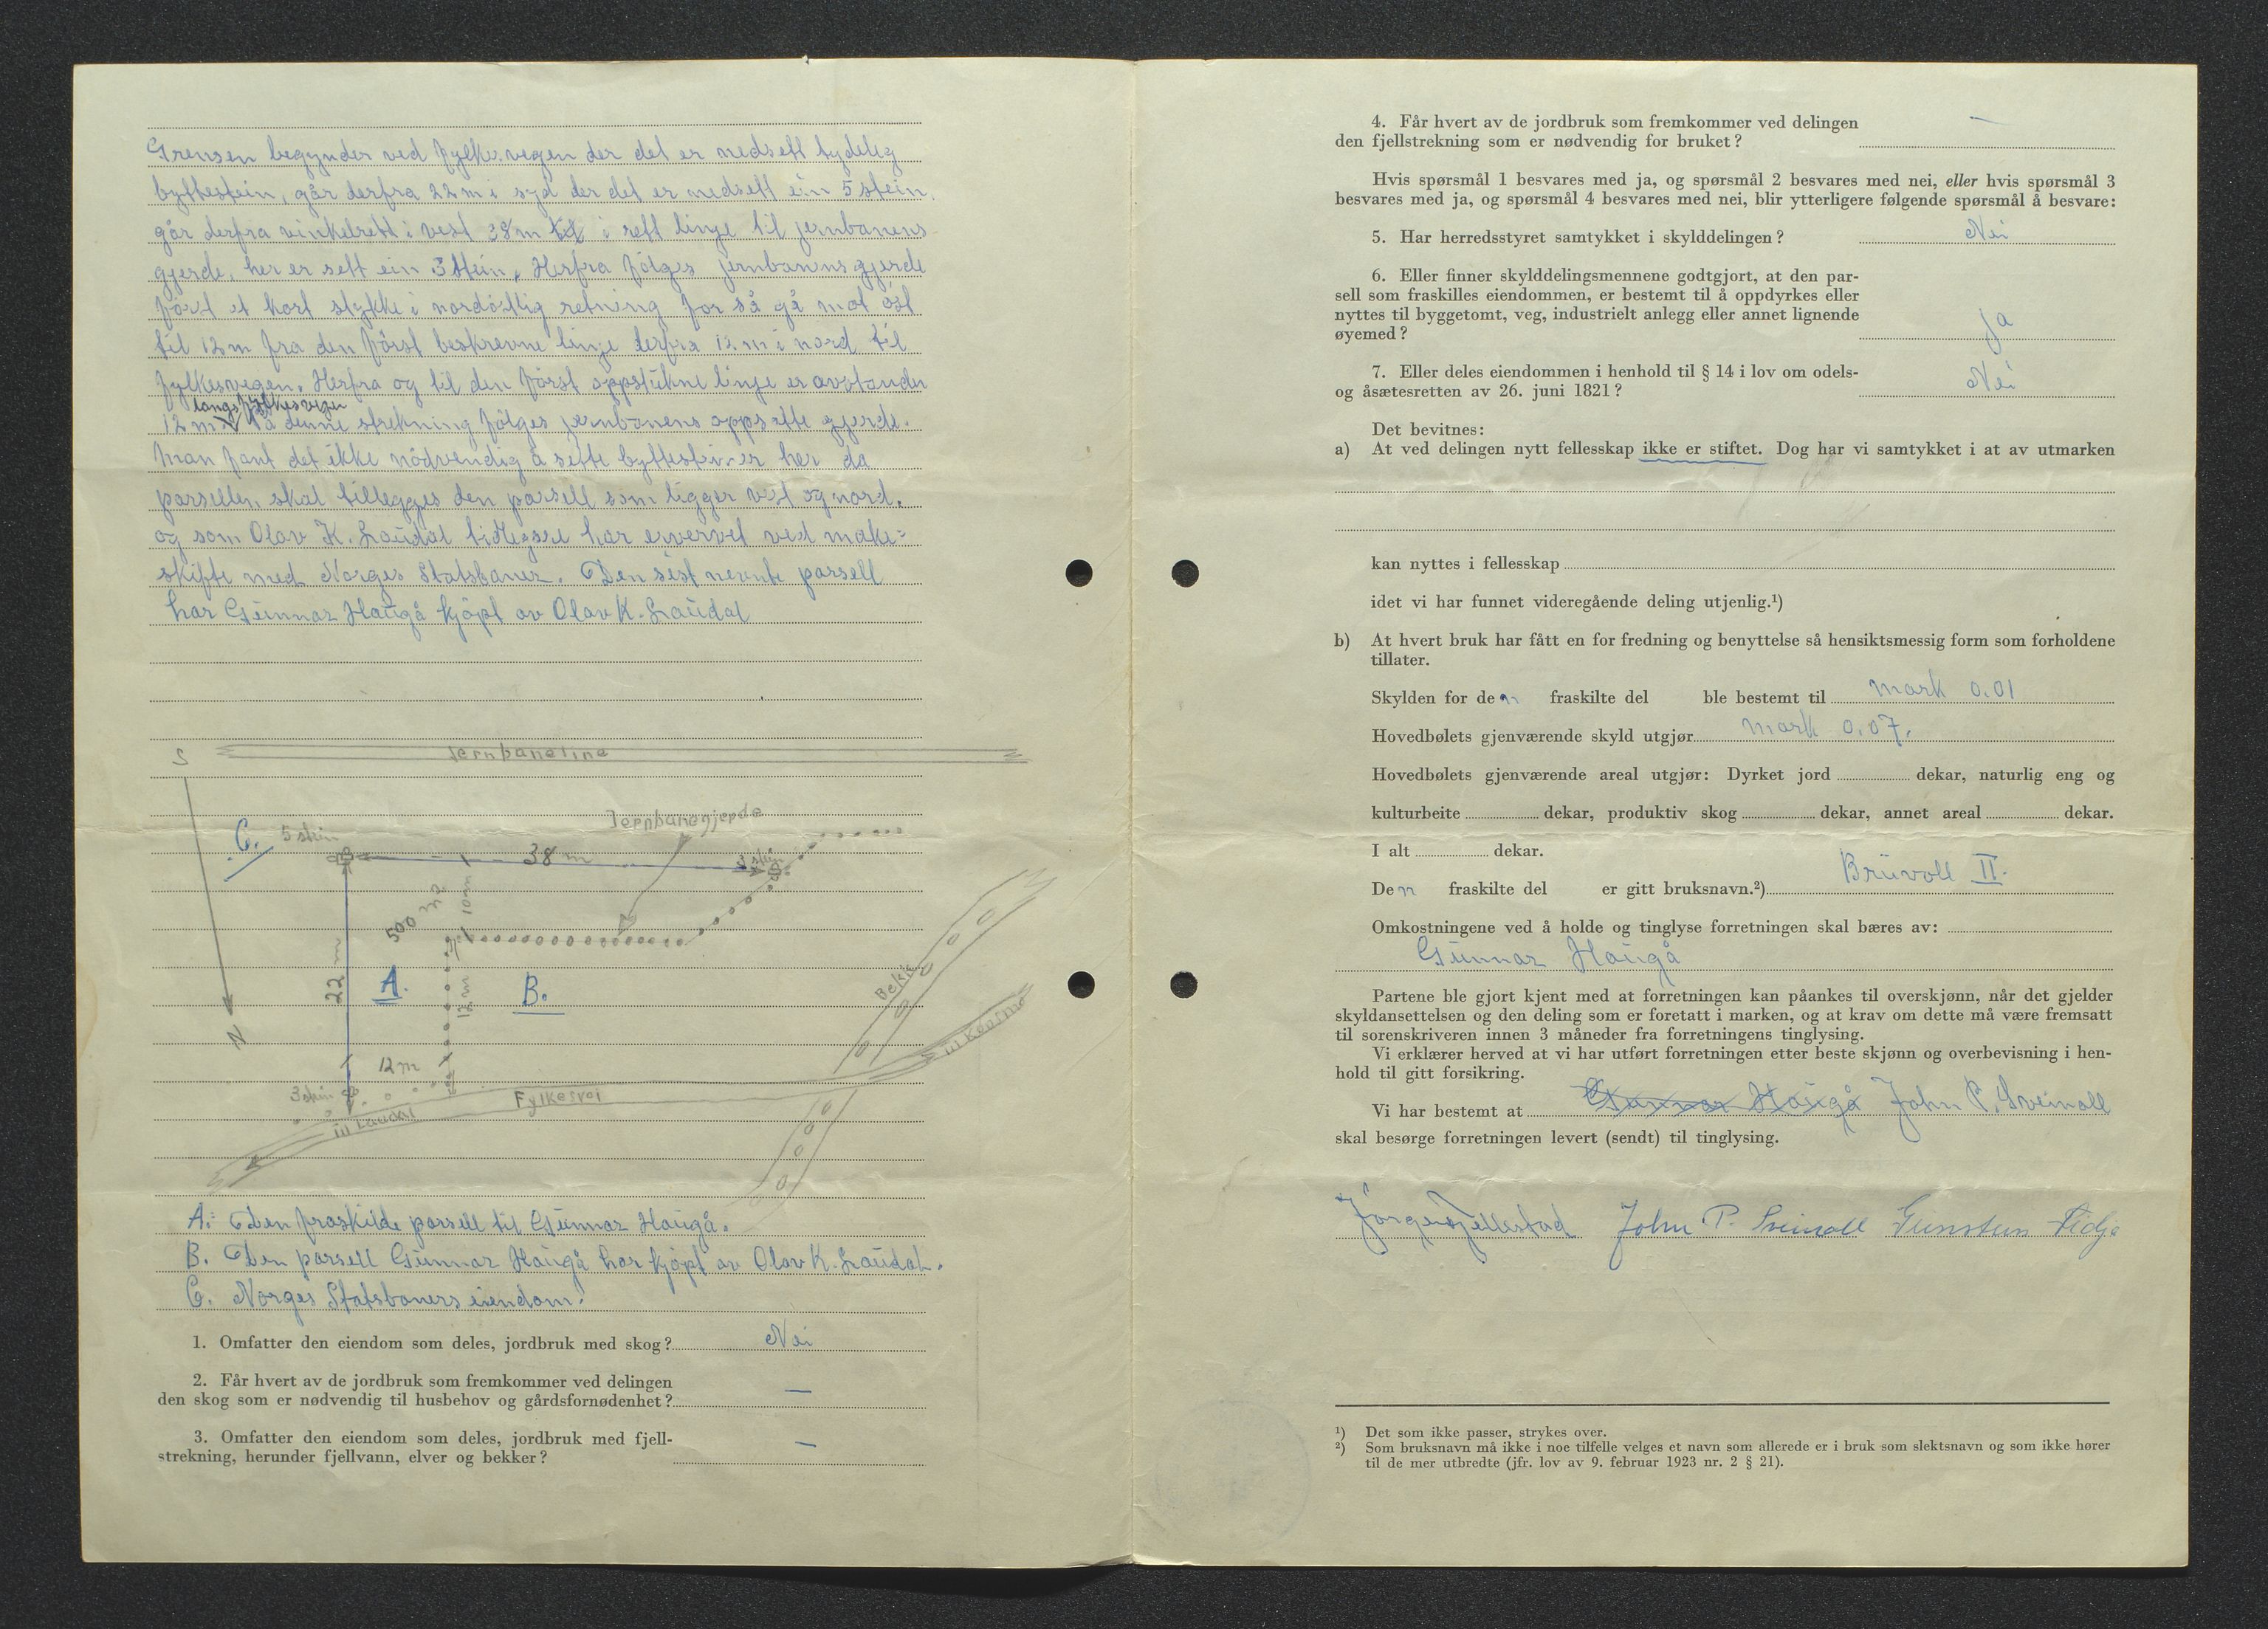 Grensen begynder ved fylkesvegen der det er nedsett tydelig
byttestein, går derfra 22 m i syd der det er nedsett ein 5 stein,
går derfra vinkelrett i vest 38 m i rett linje til jernbanens
gjerde, her er sett ein 3 stein. Herfra følges jernbanens gjerde
først et kort stykke i nordöstlig retning for så gå mot öst
til 12 m fra den först beskrevne linje derfra 12 m i nord til
fylkesvegen. Herfra og til den först oppstukne linje er avstanden
langs fylkesvegen
12 m. På denne strekning fölges jernbanens oppsatte gjerde.
Man fant det ikke nödvendig å sette byttesteiner her da
parsellen skal tillegges den parsell som ligger vest og nord.
og som Olav K. Laudal tidlegere har ervervet ved make-
skifte med Norges Statsbaner. Den sist nevnte parsell
har Gunnar Haugå kjöpt av Olav K. Laudal
S
Jernbaneline
Jernbanegjerde
C. 5 stein
38 m
3 stein
10 m
500 m²
22 m
A.
B.
12 m
Bekk
N
12 m
til Kvosmo
3 stein
Fylkesvei
til Laudal
A. Den fraskilde parsell til Gunnar Haugå.
B. Den parsell Gunnar Haugå har kjöpt av Olav K. Laudal.
C. Norges Statsbaners eiendom.
1. Omfatter den eiendom som deles, jordbruk med skog? Nei
2. Får hvert av de jordbruk som fremkommer ved delingen
den skog som er nødvendig til husbehov og gårdsfornødenhet? —
3. Omfatter den eiendom som deles, jordbruk med fjell-
strekning, herunder fjellvann, elver og bekker? —
4. Får hvert av de jordbruk som fremkommer ved delingen
den fjellstrekning som er nødvendig for bruket? —
Hvis spørsmål 1 besvares med ja, og spørsmål 2 besvares med nei, eller hvis spørsmål 3
besvares med ja, og spørsmål 4 besvares med nei, blir ytterligere følgende spørsmål å besvare:
5. Har herredsstyret samtykket i skylddelingen? Nei
6. Eller finner skylddelingsmennene godtgjort, at den par-
sell som fraskilles eiendommen, er bestemt til å oppdyrkes eller
nyttes til byggetomt, veg, industrielt anlegg eller annet lignende
øyemed? ja
7. Eller deles eiendommen i henhold til § 14 i lov om odels-
og åsætesretten av 26. juni 1821? Nei
Det bevitnes:
a) At ved delingen nytt fellesskap ikke er stiftet. Dog har vi samtykket i at av utmarken
kan nyttes i fellesskap
idet vi har funnet videregående deling utjenlig.¹)
b) At hvert bruk har fått en for fredning og benyttelse så hensiktsmessig form som forholdene
tillater.
Skylden for den fraskilte del ble bestemt til mark 0.01
Hovedbølets gjenværende skyld utgjør mark 0.07.
Hovedbølets gjenværende areal utgjør: Dyrket jord dekar, naturlig eng og
kulturbeite dekar, produktiv skog dekar, annet areal dekar.
I alt dekar.
Den fraskilte del er gitt bruksnavn.²) Bruvoll II.
Omkostningene ved å holde og tinglyse forretningen skal bæres av:
Gunnar Haugå
Partene ble gjort kjent med at forretningen kan påankes til overskjønn, når det gjelder
skyldansettelsen og den deling som er foretatt i marken, og at krav om dette må være fremsatt
til sorenskriveren innen 3 måneder fra forretningens tinglysing.
Vi erklærer herved at vi har utført forretningen etter beste skjønn og overbevisning i hen-
hold til gitt forsikring.
Vi har bestemt at Gunnar Haugå John P. Sveinall
skal besørge forretningen levert (sendt) til tinglysing.
Jörgen Jellestad John P. Sveinall Gunstein Fidje
¹) Det som ikke passer, strykes over.
²) Som bruksnavn må ikke i noe tilfelle velges et navn som allerede er i bruk som slektsnavn og som ikke hører
til de mer utbredte (jfr. lov av 9. februar 1923 nr. 2 § 21).